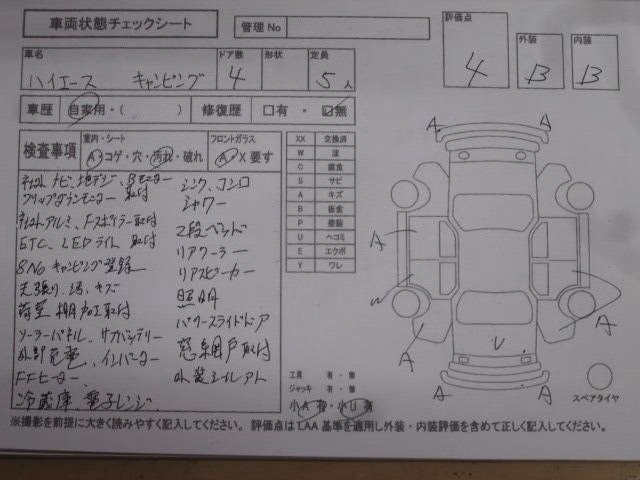 車両状態チェックシート 管理No
評価点 4 外装 B 内装 B
車名 ハイエース キャンピング ドア数 4 形状 定員 5人
車歴 自家用・( ) 修復歴 □有・☑無
検査事項 室内・シート A コゲ・穴・汚れ・破れ フロントガラス A X要す
社外ナビ、地デジ、Bモニター
フリップダウンモニター 取付
社外アルミ、Fスポイラー取付
ETC、LEDライト 取付
8No キャンピング登録
天張り、汚、キズ
荷室 棚加工取付
ソーラーパネル、サブバッテリー
外部充電、インバーター
FFヒーター
冷蔵庫、電子レンジ
シンク、コンロ
シャワー
2段ベッド
リアクーラー
リアスピーカー
照明
パワースライドドア
窓網戸取付
外装シール アト
XX 交換済
W 波
C 腐食
S サビ
A キズ
B 板金
P 塗装
U ヘコミ
E エクボ
Y ワレ
A A
A
W
A
A
U
A A
スペアタイヤ
工具 有・無
ジャッキ 有・無
小A有・小U有
※撮影を前提に大きく読みやすく記入してください。 評価点はLAA基準を適用し外装・内装評価を含めて正しく記入してください。